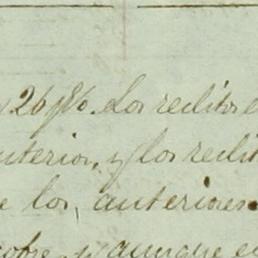 26 p% Los reditos
anterior, y los redit
e los anteriores
cobre y aunque e